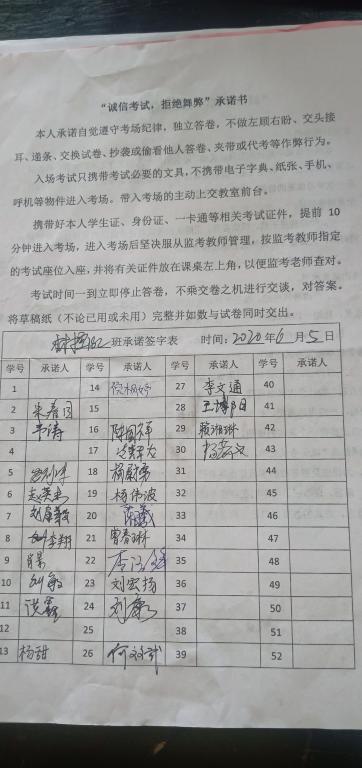 “诚信考试，拒绝舞弊”承诺书
本人承诺自觉遵守考场纪律，独立答卷，不做左顾右盼、交头接
耳、递条、交换试卷、抄袭或偷看他人答卷、夹带或代考等作弊行为。
入场考试只携带考试必要的文具，不携带电子字典、纸张、手机、
呼机等物件进入考场。带入考场的主动上交教室前台。
携带好本人学生证、身份证、一卡通等相关考试证件，提前 10
分钟进入考场，进入考场后坚决服从监考教师管理，按监考教师指定
的考试座位入座，并将有关证件放在课桌左上角，以便监考老师查对。
考试时间一到立即停止答卷，不乘交卷之机进行交谈，对答案。
将草稿纸（不论已用或未用）完整并如数与试卷同时交出。
班承诺签字表 时间：2020年6月5日
学号 承诺人 学号 承诺人 学号 承诺人 学号 承诺人
1 14 27 李文通 40
2 15 28 王博阳 41
3 韦涛 16 29 42
4 17 30 43
5 18 31 44
6 19 杨伟波 32 45
7 20 33 46
8 李翔 21 曾春琳 34 47
9 肖景 22 35 48
10 刘敏 23 刘宏扬 36 49
11 洪鑫 24 刘康 37 50
12 25 38 51
13 杨甜 26 39 52